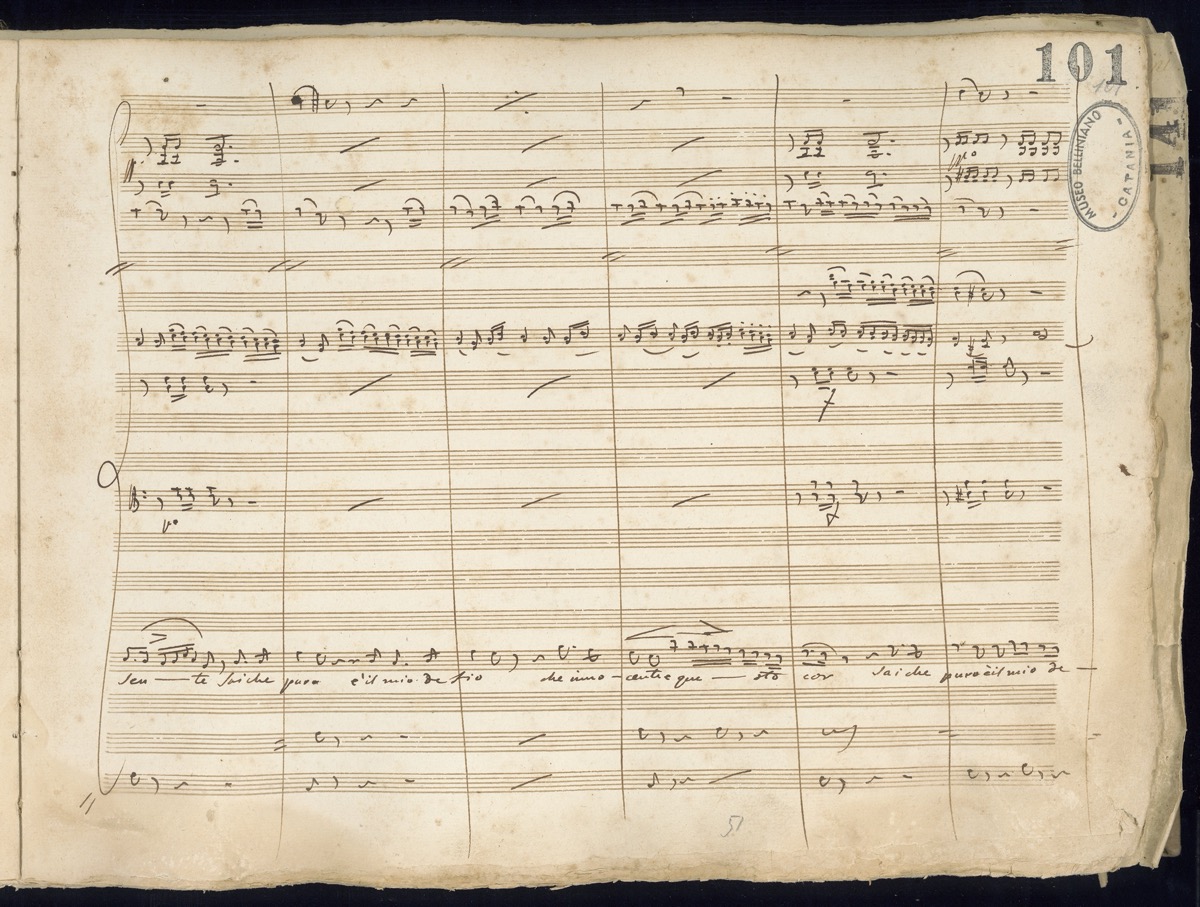 101
MUSEO BELLINIANO
- CATANIA -
141
pmo
f
f
po
sen — te sai che pura è il mio de sio che inno — cente è que — sto cor sai che puro è il mio de —
51